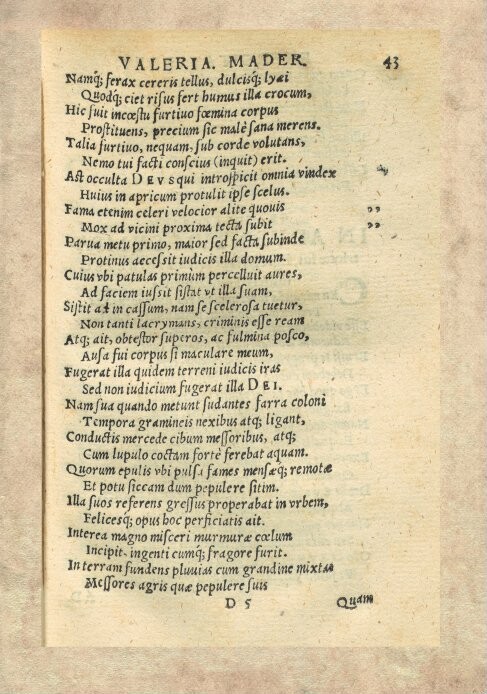 VALERIA. MADER. 43
Namq; ferax cereris tellus, dulcisq; lyæi
Quodq; ciet risus fert humus illa crocum,
Hic fuit incœstu furtiuo fœmina corpus
Prostituens, precium sic malè sana merens.
Talia furtiuo, nequam, sub corde volutans,
Nemo tui facti conscius (inquit) erit.
Ast occulta DEVS qui introspicit omnia vindex
Huius in apricum protulit ipse scelus.
Fama etenim celeri velocior alite quouis ,,
Mox ad vicini proxima tecta subit ,,
Parua metu primo, maior sed facta subinde
Protinus accessit iudicis illa domum.
Cuius vbi patulas primùm percellit aures,
Ad faciem iussit sistat vt illa suam,
Sistit at in cassum, nam se scelerosa tuetur,
Non tanti lacrymans, criminis esse ream
Atq; ait, obtestor superos, ac fulmina posco,
Ausa fui corpus si maculare meum,
Fugerat illa quidem terreni iudicis iras
Sed non iudicium fugerat illa DEI.
Nam sua quando metunt sudantes farra coloni
Tempora gramineis nexibus atq; ligant,
Conductis mercede cibum messoribus, atq;
Cum lupulo coctam fortè ferebat aquam.
Quorum epulis vbi pulsa fames mensæq; remotæ
Et potu siccam dum pepulere sitim.
Illa suos referens gressus properabat in vrbem,
Felicesq; opus hoc perficiatis ait.
Interea magno misceri murmuræ cœlum
Incipit, ingenti cumq; fragore furit.
In terram fundens pluuias cum grandine mixtas
Messores agris quæ pepulere suis
D 5 Quam